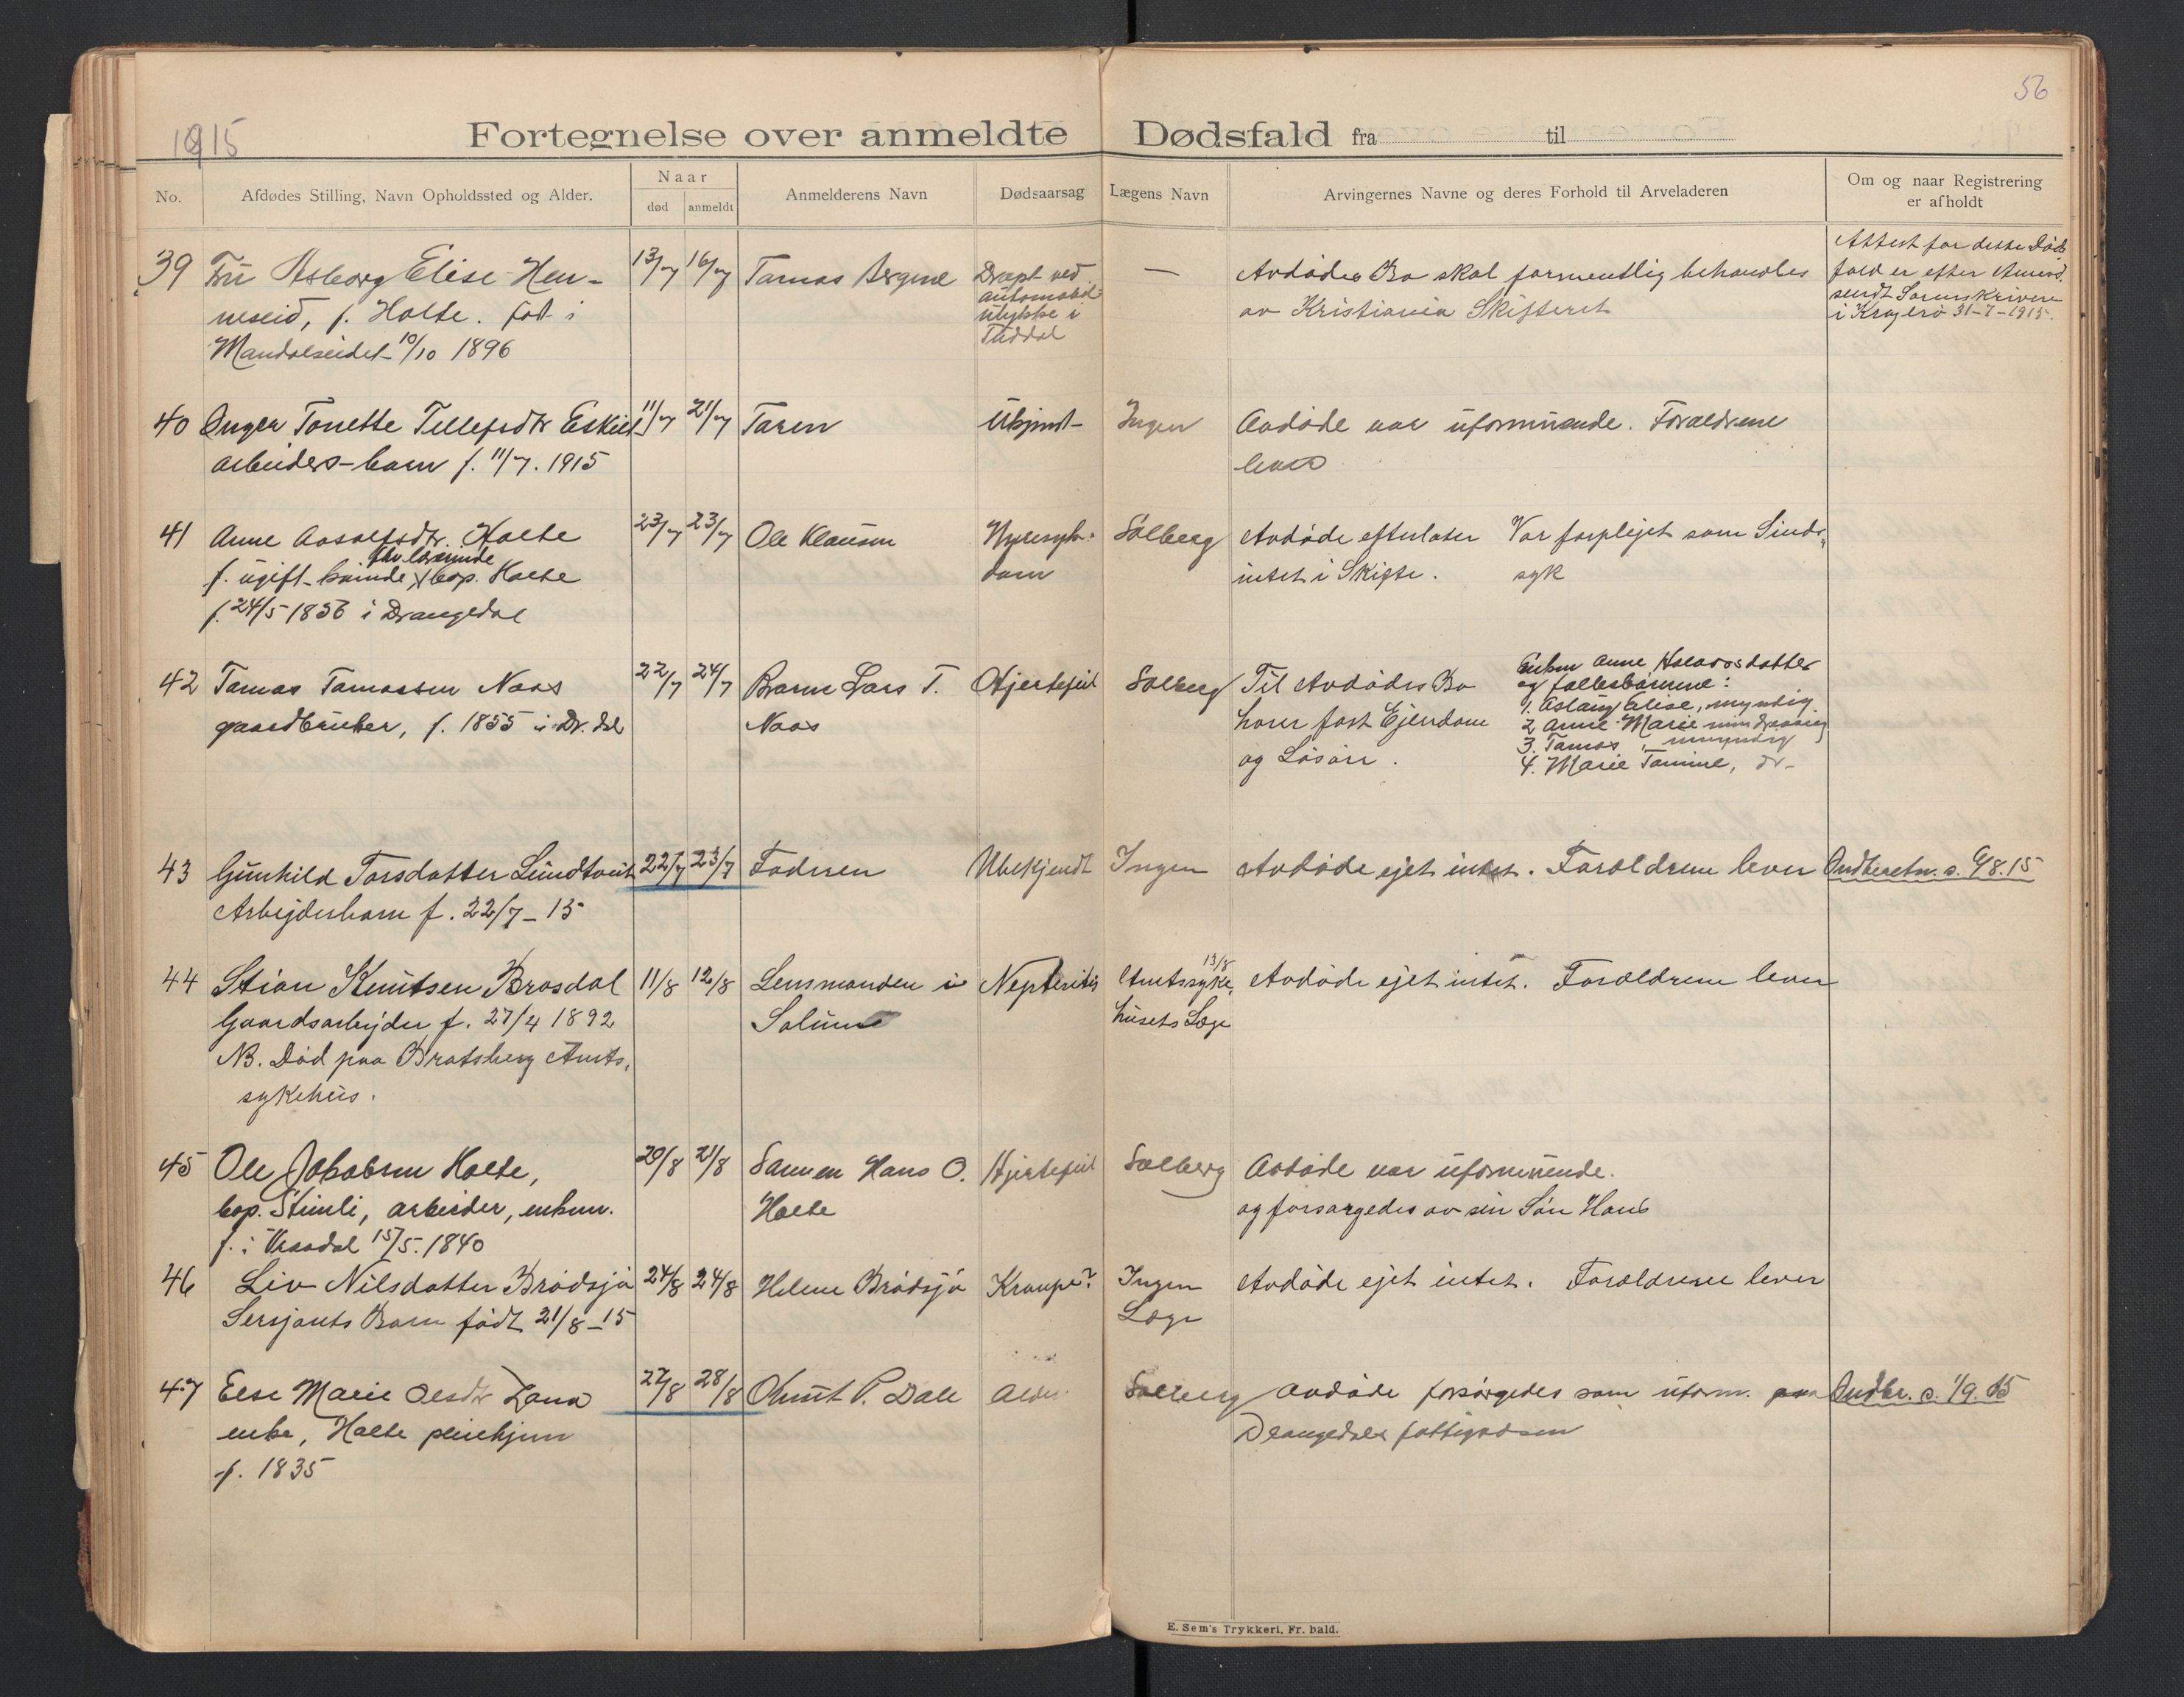 56
1915
Fortegnelse over anmeldte Dødsfald fra til
No.
Afdødes Stilling, Navn Opholdssted og Alder.
Naar
død
anmeldt
Anmelderens Navn
Dødsaarsag
Lægens Navn
Arvingernes Navne og deres Forhold til Arveladeren
Om og naar Registrering
er afholdt
39 Fru Asborg Elise Hen-
neseid, f. Holte. fød i
Mandalseidet 10/10 1896
13/7 16/7
Tarnas Bergene
Dræpt ved
automobil-
ulykke i
Tuddal
—
Avdødes Bo skal formentlig behandles
av Kristiania Skifteret
Attest for dette Døds
fald er efter
sendt Sorenskriveren
i Kragerø 31-7-1915.
40 Inger Tonette Tellefsdtr Eskild
arbeiders-barn f. 11/7. 1915
11/7 21/7
Faren
Ukjendt
Ingen
Avdøde var uformuende. Forældrene
lever
41 Anne Aasoltsdtr. Holte
fhv. lærerinde
f. ugift kvinde bop. Holte
f. 24/5 1856 i Drangedal
23/7 23/7
Ole Klausen
Nyresyk-
dom
Solberg
Avdøde efterlater
intet i Skifte.
Var forpleiet som Sinds-
syk
42 Tarnas Tarnassen Naas
gaardbruker, f. 1855 i Dr.dal
22/7 24/7
Barn Lars T.
Naas
Hjertefeil
Solberg
Til Avdødes Bo
hører fast Ejendom
og Løsøre.
Enken Anne Halvorsdatter
og fællesbørnene:
1. Aslaug Elise, myndig
2 Anne Marie mindreaarig
3. Tarnas, umyndig
4. Marie Tomine, do-
43 Gunhild Torsdatter Lundtveit
Arbejderbarn f. 22/7-15
22/7 23/7
Faderen
Ubekjendt
Ingen
Avdøde ejet intet. Forældrene lever
Indberetn. s. 6/8.15
44 Stian Knutsen Brosdal
Gaardsarbejder f. 27/4 1892
NB. Død paa Bratsberg Amts-
sykehus.
11/8 12/8
Lensmanden i
Solum
Nepteritis
13/8
Amtssyke-
husets Læge
Avdøde ejet intet. Forældrene lever
45 Ole Jakobsen Holte,
bop. Stimli, arbeider, enkem.
f. i Vraadal 15/5. 1840
20/8 21/8
Sønnen Hans O.
Holte
Hjertefeil
Solberg
Avdøde var uformuende.
og forsørgedes av sin Søn Hans
46 Liv Nilsdatter Brødsjø
Sersjants Barn født 21/8-15
24/8 24/8
Helene Brødsjø
Krampe?
Ingen
Læge
Avdøde ejet intet. Forældrene lever
47 Else Marie Olsdtr Lona
enke, Holte pleiehjem
f. 1835
27/8 28/8
Knut P. Dale
Alder
Solberg
Avdøde forsørgedes som uform. paa
Drangedals fattigvæsen
Indber. s. 1/9. 15
E. Sem's Trykkeri, Fr. hald.